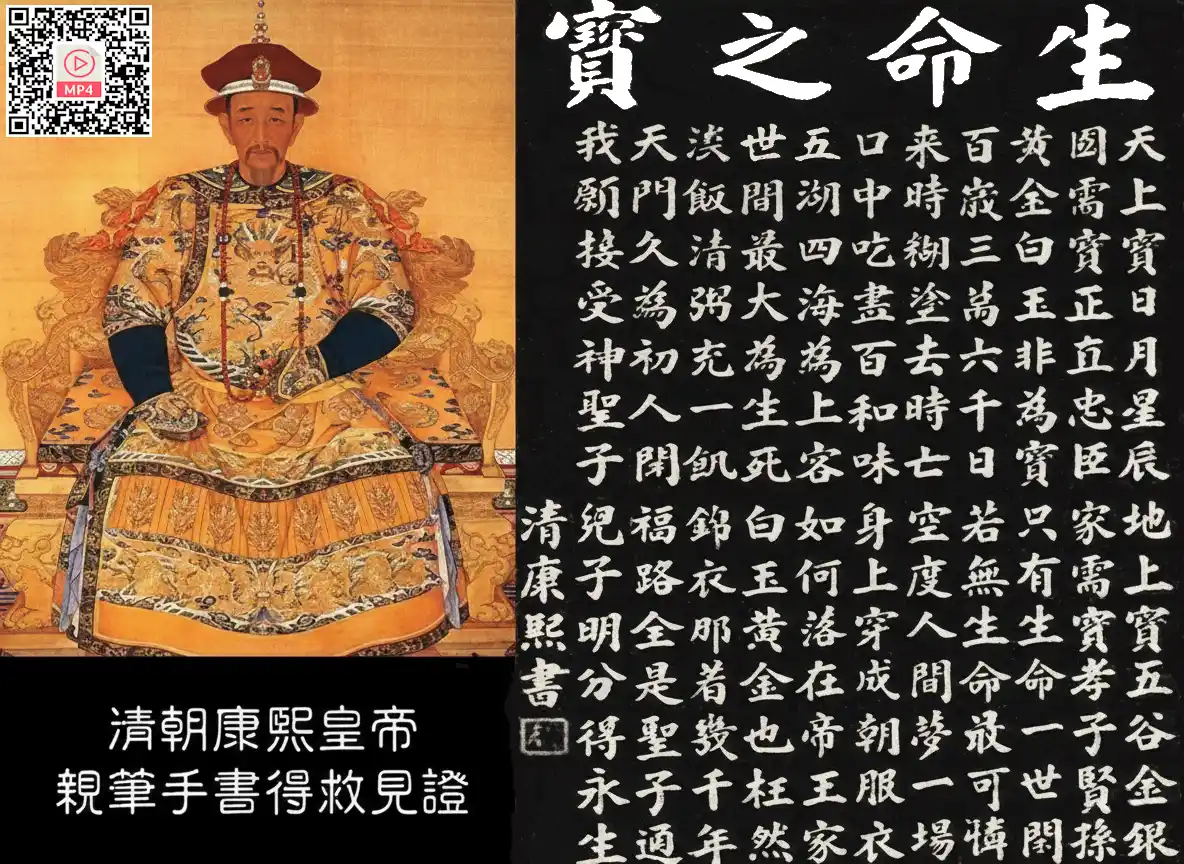 MP4
生命之寶
天上寶日月星辰 地上寶五谷金銀
国需寶正直忠臣 家需寶孝子賢孫
黄金白玉非為寶 只有生命一世閑
百歳三萬六千日 若無生命最可憐
来時糊塗去時亡 空度人間夢一場
口中吃盡百和味 身上穿成朝服衣
五湖四海為上客 如何落在帝王家
世間最大為生死 白玉黄金也枉然
淡飯清粥充一飢 錦衣那着幾千年
天門久為初人閉 福路全是聖子通
我願接受神聖子 兒子明分得永生
清康熙書
清朝康熙皇帝
親筆手書得救見證